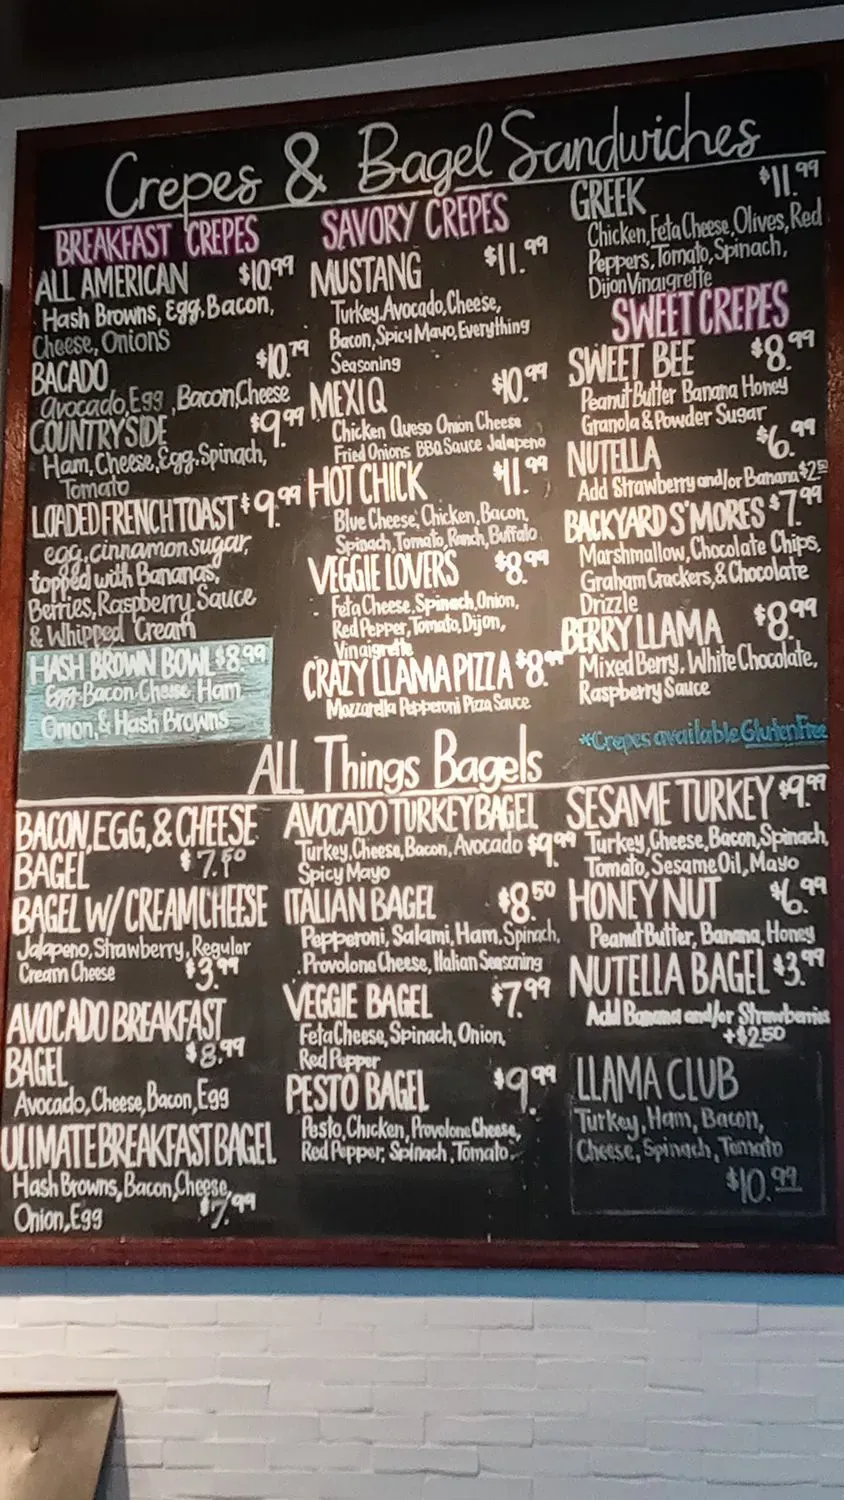 Crepes & Bagel Sandwiches
BREAKFAST CREPES
ALL AMERICAN $10.99
Hash Browns, Egg, Bacon,
Cheese, Onions
BACADO $10.79
Avocado, Egg, Bacon, Cheese
COUNTRYSIDE $9.99
Ham, Cheese, Egg, Spinach,
Tomato
LOADED FRENCH TOAST $9.99
egg, cinnamon sugar,
topped with Bananas,
Berries, Raspberry Sauce
& Whipped Cream
HASH BROWN BOWL $8.99
Egg, Bacon, Cheese, Ham
Onion, & Hash Browns
SAVORY CREPES
MUSTANG $11.99
Turkey, Avocado, Cheese,
Bacon, Spicy Mayo, Everything
Seasoning
MEXI Q $10.99
Chicken Queso Onion Cheese
Fried Onions BBQ Sauce Jalapeno
HOT CHICK $11.99
Blue Cheese, Chicken, Bacon,
Spinach, Tomato, Ranch, Buffalo
VEGGIE LOVERS $8.99
Feta Cheese, Spinach, Onion,
Red Pepper, Tomato, Dijon,
Vinaigrette
CRAZY LLAMA PIZZA $8.99
Mozzarella Pepperoni Pizza Sauce
GREEK $11.99
Chicken, Feta Cheese, Olives, Red
Peppers, Tomato, Spinach,
Dijon Vinaigrette
SWEET CREPES
SWEET BEE $8.99
Peanut Butter Banana Honey
Granola & Powder Sugar
NUTELLA $6.99
Add Strawberry and/or Banana $2.50
BACKYARD S'MORES $7.99
Marshmallow, Chocolate Chips,
Graham Crackers, & Chocolate
Drizzle
BERRY LLAMA $8.99
Mixed Berry, White Chocolate,
Raspberry Sauce
*Crepes available Gluten Free
ALL Things Bagels
BACON, EGG, & CHEESE
BAGEL $7.50
BAGEL W/ CREAM CHEESE
Jalapeno, Strawberry, Regular
Cream Cheese $3.99
AVOCADO BREAKFAST
BAGEL $8.99
Avocado, Cheese, Bacon, Egg
ULIMATE BREAKFAST BAGEL
Hash Browns, Bacon, Cheese,
Onion, Egg $7.99
AVOCADO TURKEY BAGEL
Turkey, Cheese, Bacon, Avocado $9.99
Spicy Mayo
ITALIAN BAGEL $8.50
Pepperoni, Salami, Ham, Spinach,
Provolone Cheese, Italian Seasoning
VEGGIE BAGEL $7.99
Feta Cheese, Spinach, Onion,
Red Pepper
PESTO BAGEL $9.99
Pesto, Chicken, Provolone Cheese,
Red Pepper, Spinach, Tomato
SESAME TURKEY $9.99
Turkey, Cheese, Bacon, Spinach,
Tomato, Sesame Oil, Mayo
HONEY NUT $6.99
Peanut Butter, Banana, Honey
NUTELLA BAGEL $3.99
Add Banana and/or Strawberries
+$2.50
LLAMA CLUB
Turkey, Ham, Bacon,
Cheese, Spinach, Tomato
$10.99